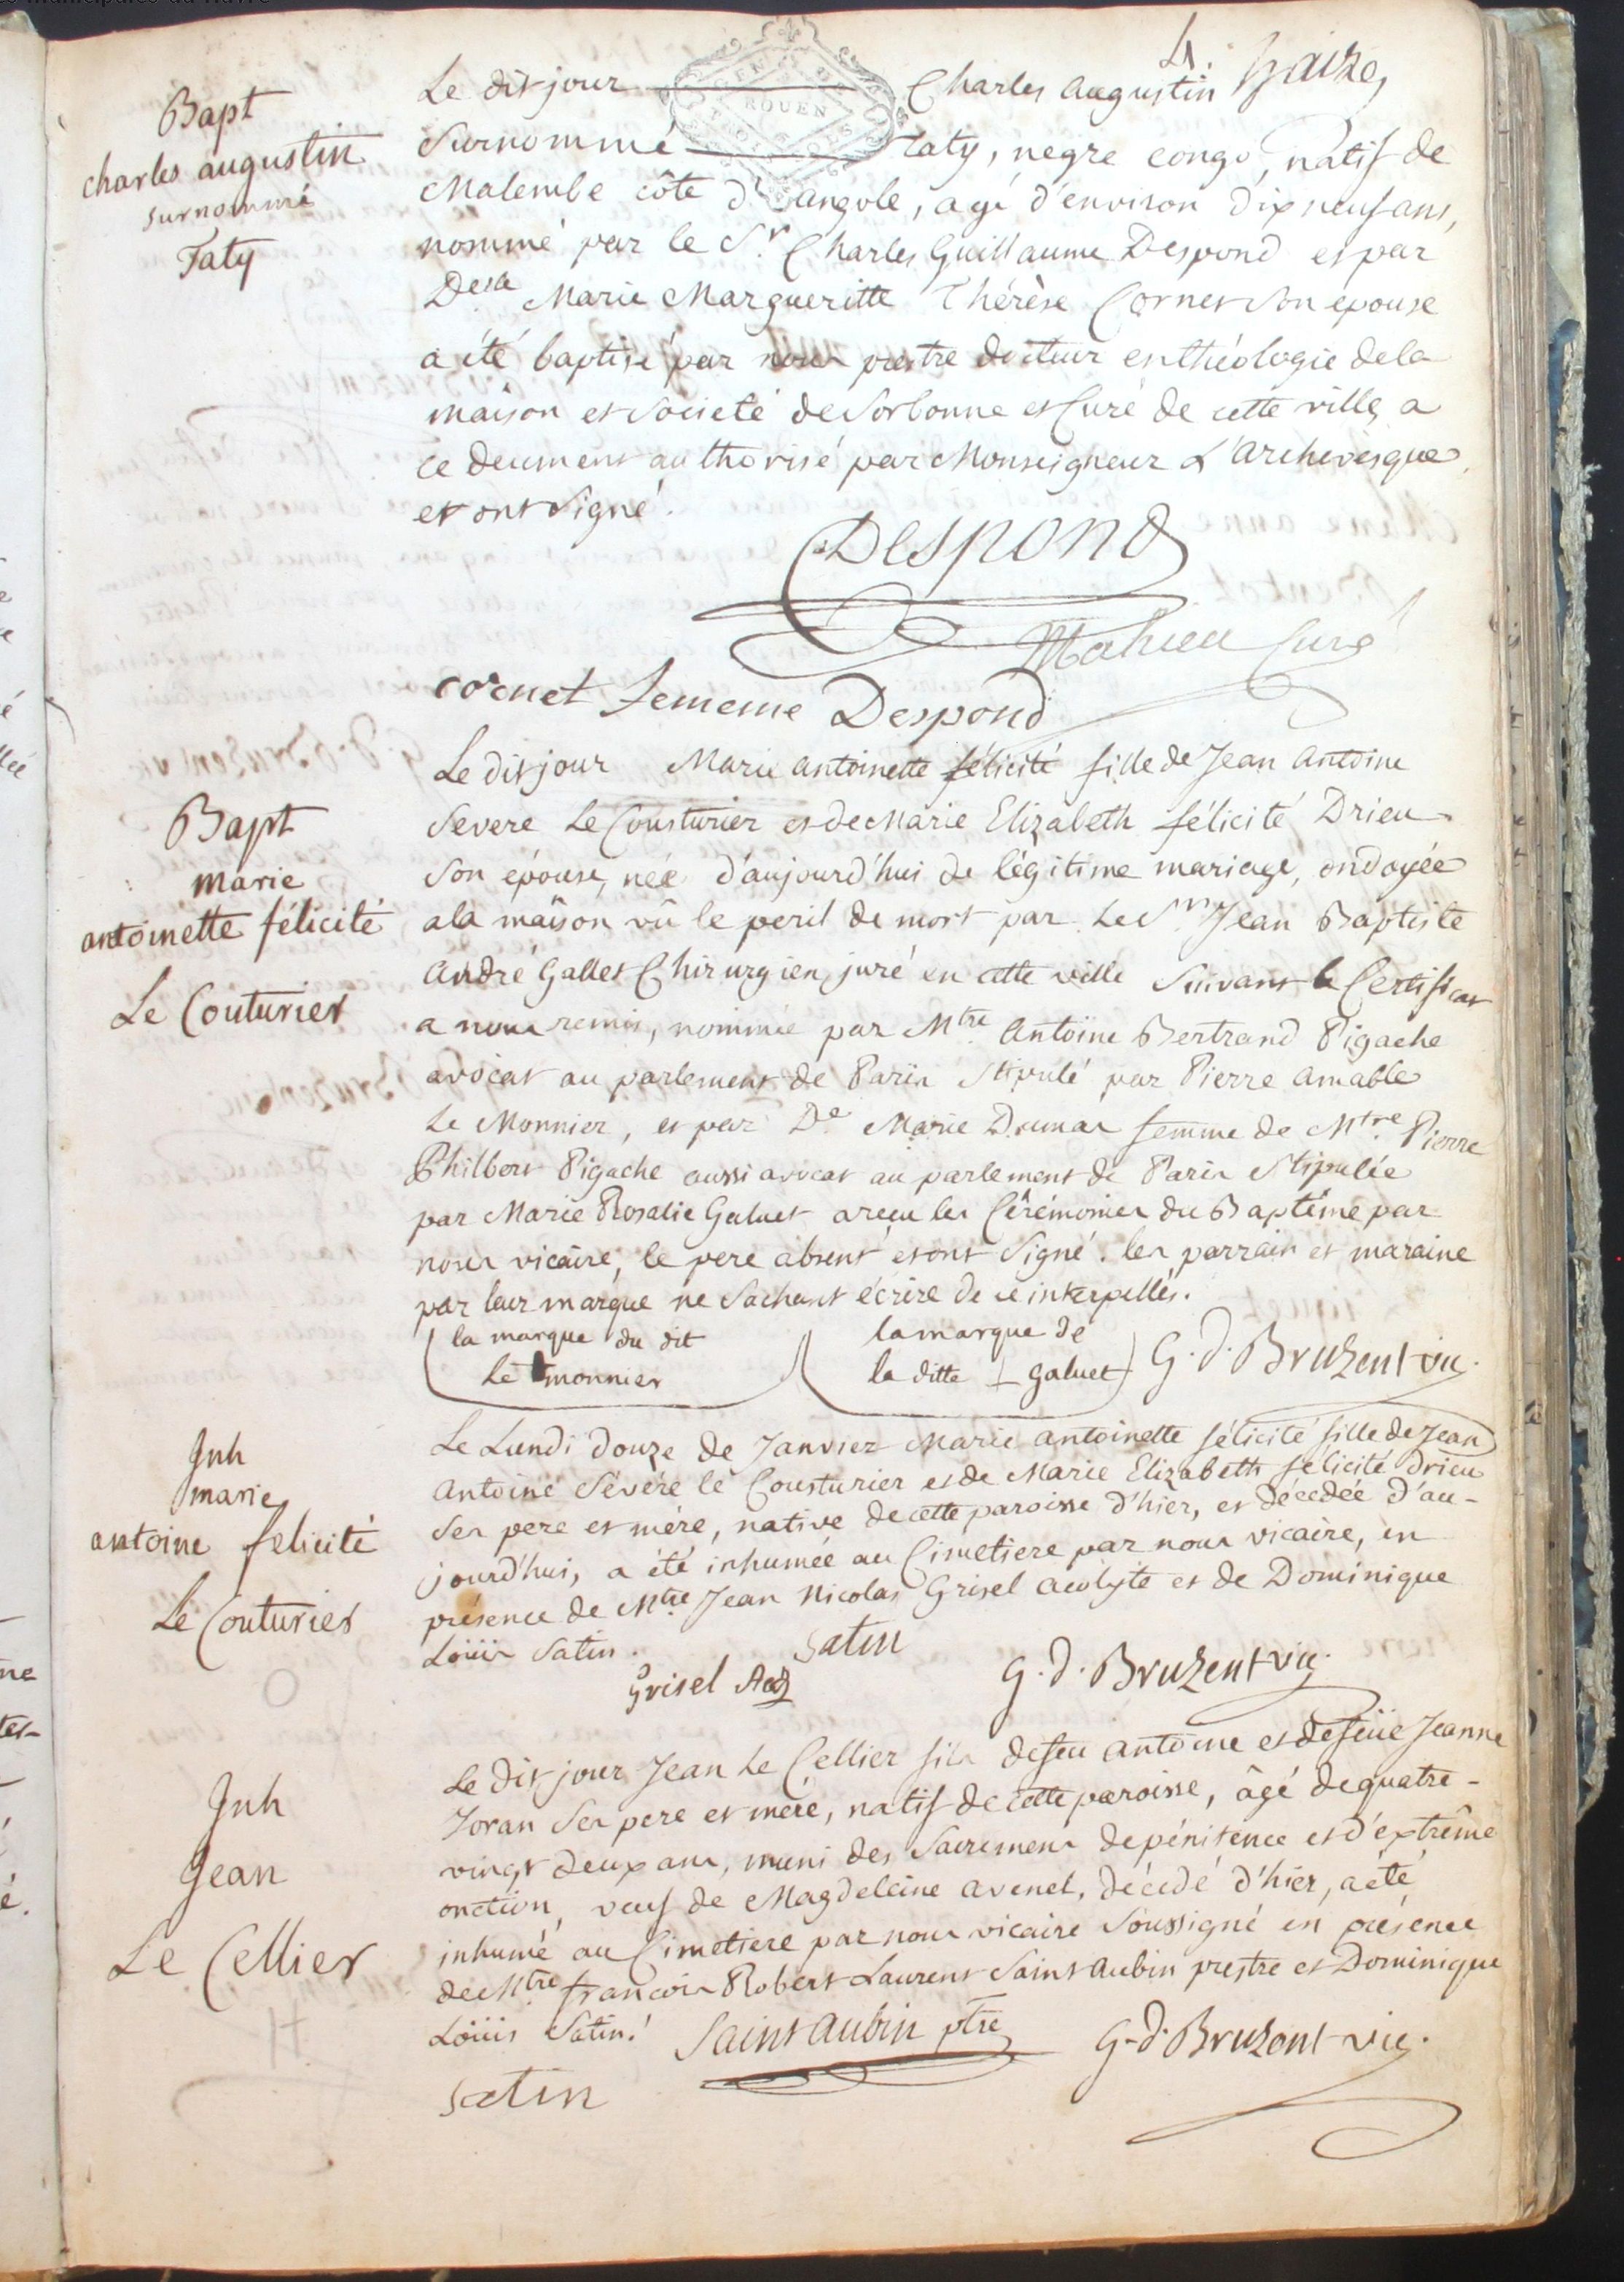 Bapt
charles augustin
surnommé
Taty
4.
Le dit jour Charles Augustin
GEN ROUEN
Surnommé Taty, negre congo, natif de
Malembe côte d'angole, agé d'environ dix neuf ans,
nommé par le Sr. Charles Guillaume Despond et par
Delle Marie Margueritte Thérèse Cornet son épouse
a été baptisé par nous prestre docteur en théologie de la
maison et société de Sorbonne et Curé de cette ville, a
ce deument authorisé par Monseigneur L'Archevesque,
et ont signé.
Despond
Mahieu Curé
cornet femme Despond
Bapt
marie
antoinette félicité
Le Couturier
Le dit jour Marie antoinette félicité fille de Jean Antoine
Severe Le Cousturier et de Marie Elizabeth félicité Drieu
son épouse, née d'aujourd'hui de légitime mariage, ondoyée
a la maison vû le peril de mort par Le Sr. Jean Baptiste
André Gallet Chirurgien juré en cette ville suivant le Certificat
a nous remis, nommée par Mtre Antoine Bertrand Pigache
avocat au parlement de Paris stipulé par Pierre amable
Le Monnier, et par De Marie Dumas femme de Mtre. Pierre
Philbert Pigache aussi avocat au parlement de Paris stipulée
par Marie Rosalie Galuet a reçu les Cérémonies du Baptême par
nous vicaire, le pere absent et ont signé. les parrain et maraine
par leur marque ne sachant écrire de ce interpellés.
la marque du dit
Le monnier
la marque de
la ditte galuet
G. d. Bruzent vic.
Inh
marie
antoine felicité
Le Couturier
Le Lundi douze de Janvier Marie antoinette félicité fille de Jean
Antoine Sévère le Cousturier et de Marie Elizabeth félicité Drieu
ses pere et mère, native de cette paroisse d'hier, et décedée d'au-
jourd'hui, a été inhumée au Cimetiere par nous vicaire, en
présence de Mtre Jean Nicolas Grisel acolyte et de Dominique
Loüis Satin.
satin
Grisel
G. d. Bruzent vic.
Inh
Jean
Le Cellier
Le dit jour Jean Le Cellier fils de feu antoine et de feüe Jeanne
Joran ses pere et mère, natif de cette paroisse, âgé de quatre-
vingt deux ans, muni des Sacremens de pénitence et d'extrême
onction, veuf de Magdeleine avenel, décédé d'hier, a été
inhumé au Cimetiere par nous vicaire soussigné en présence
de Mtre francois Robert Laurent Saint Aubin prestre et Dominique
Loüis Satin.
Saint Aubin ptre
G. d. Bruzent vic.
satin